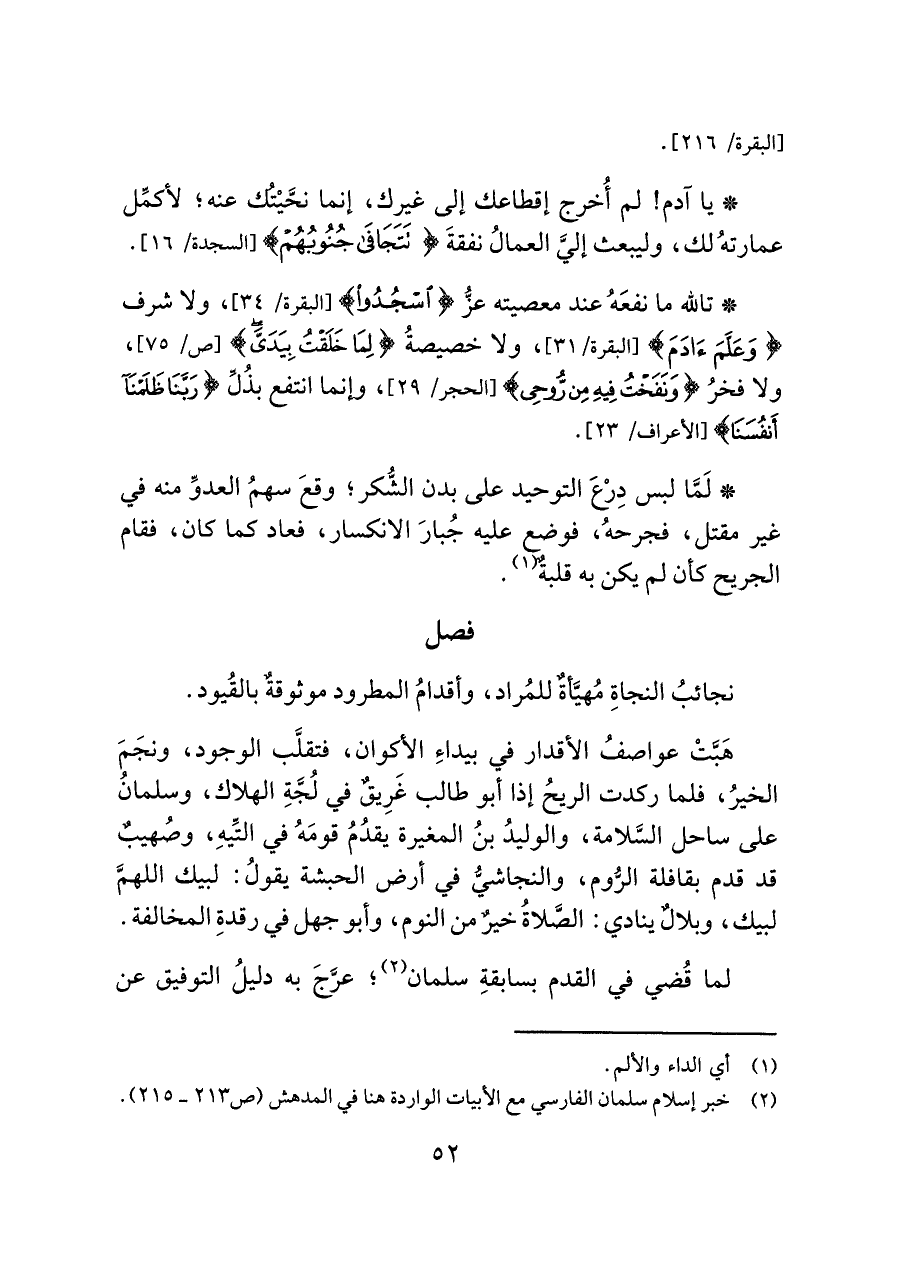 [البقرة/ ٢١٦].
* يا آدم! لم أُخرج إقطاعك إلى غيرك، إنما نحَّيْتُك عنه؛ لأكمِّل
عمارتهُ لك، وليبعث إليَّ العمالُ نفقةَ ﴿ نَتَجَافَىٰ جُنُوبُهُمْ﴾ [السجدة/ ١٦].
* تالله ما نفعَهُ عند معصيته عزُّ ﴿ ٱسْجُدُوا۟﴾ [البقرة/ ٣٤]، ولا شرف
﴿ وَعَلَّمَ ءَادَمَ﴾ [البقرة/ ٣١]، ولا خصيصةُ ﴿ لِمَا خَلَقْتُ بِيَدَىَّۖ﴾ [ص/ ٧٥]،
ولا فخرُ ﴿ وَنَفَخْتُ فِيهِ مِن رُّوحِى﴾ [الحجر/ ٢٩]، وإنما انتفع بذُلِّ ﴿ رَبَّنَا ظَلَمْنَآ
أَنفُسَنَا﴾ [الأعراف/ ٢٣].
* لَمَّا لبس دِرْعَ التوحيد على بدن الشُّكر؛ وقعَ سهمُ العدوِّ منه في
غير مقتل، فجرحهُ، فوضع عليه جُبارَ الانكسار، فعاد كما كان، فقام
الجريح كأن لم يكن به قلبةٌ(١).
فصل
نجائبُ النجاةِ مُهيَّأةٌ للمُراد، وأقدامُ المطرود موثوقةٌ بالقُيود.
هَبَّتْ عواصفُ الأقدار في بيداءِ الأكوان، فتقلَّب الوجود، ونجَمَ
الخيرُ، فلما ركدت الريحُ إذا أبو طالب غَرِيقٌ في لُجَّةِ الهلاك، وسلمانُ
على ساحل السَّلامة، والوليدُ بنُ المغيرة يقدُمُ قومَهُ في التِّيهِ، وصُهيبٌ
قد قدم بقافلة الرُّوم، والنجاشيُّ في أرض الحبشة يقولُ: لبيك اللهمَّ
لبيك، وبلالٌ ينادي: الصَّلاةُ خيرٌ من النوم، وأبو جهل في رقدةِ المخالفة.
لما قُضي في القدم بسابقةِ سلمان(٢)؛ عرَّجَ به دليلُ التوفيق عن
(١) أي الداء والألم.
(٢) خبر إسلام سلمان الفارسي مع الأبيات الواردة هنا في المدهش (ص٢١٣ ـ ٢١٥).
٥٢